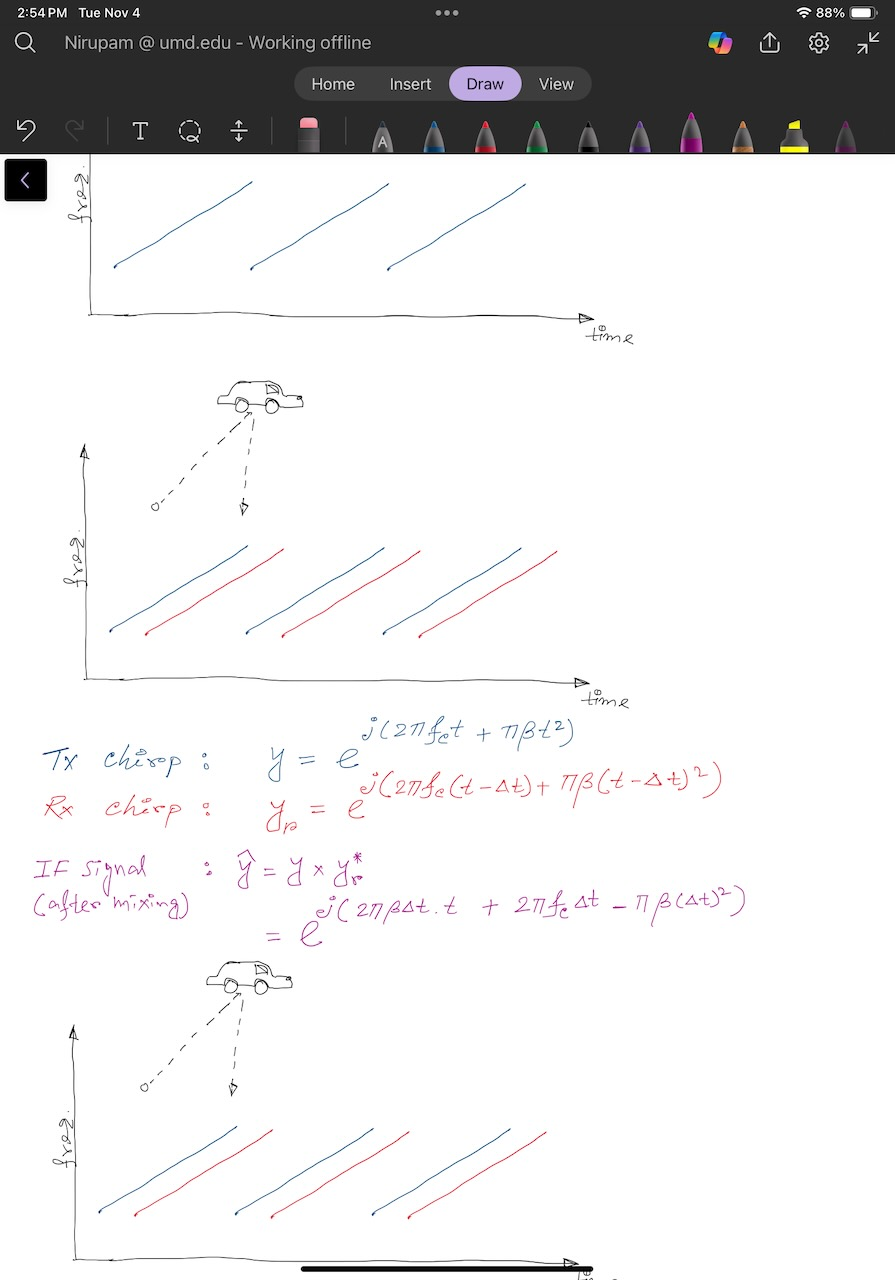 2:54 PM Tue Nov 4
88%
Nirupam @ umd.edu - Working offline
Home Insert Draw View
T
A
freq.
time
freq.
time
Tx chirp : y = e^{j(2πf_c t + πβt²)}
Rx chirp : y_r = e^{j(2πf_c(t-Δt) + πβ(t-Δt)²)}
IF signal : ŷ = y × y_r^*
(after mixing)
= e^{j(2πβΔt.t + 2πf_cΔt - πβ(Δt)²)}
freq.